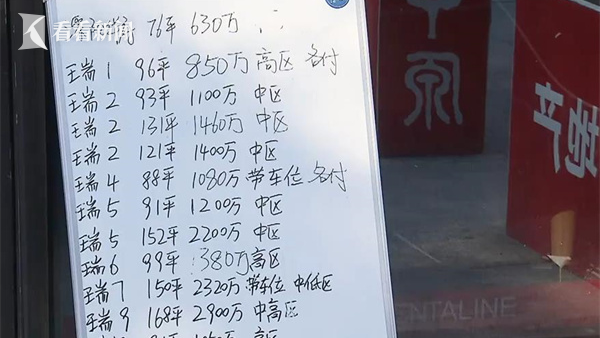 看看新闻
76平 630万
王瑞1 96平 850万 高区 各付
王瑞2 93平 1100万 中区
王瑞2 131平 1460万 中区
王瑞2 121平 1400万 中区
王瑞4 88平 1080万 带车位 各付
王瑞5 91平 1200万 中区
王瑞5 152平 2200万 中区
王瑞6 99平 380万 高区
王瑞7 150平 2320万 带车位 中低区
王瑞9 168平 2900万 中高区
高区
中原
地产
ENTALINE